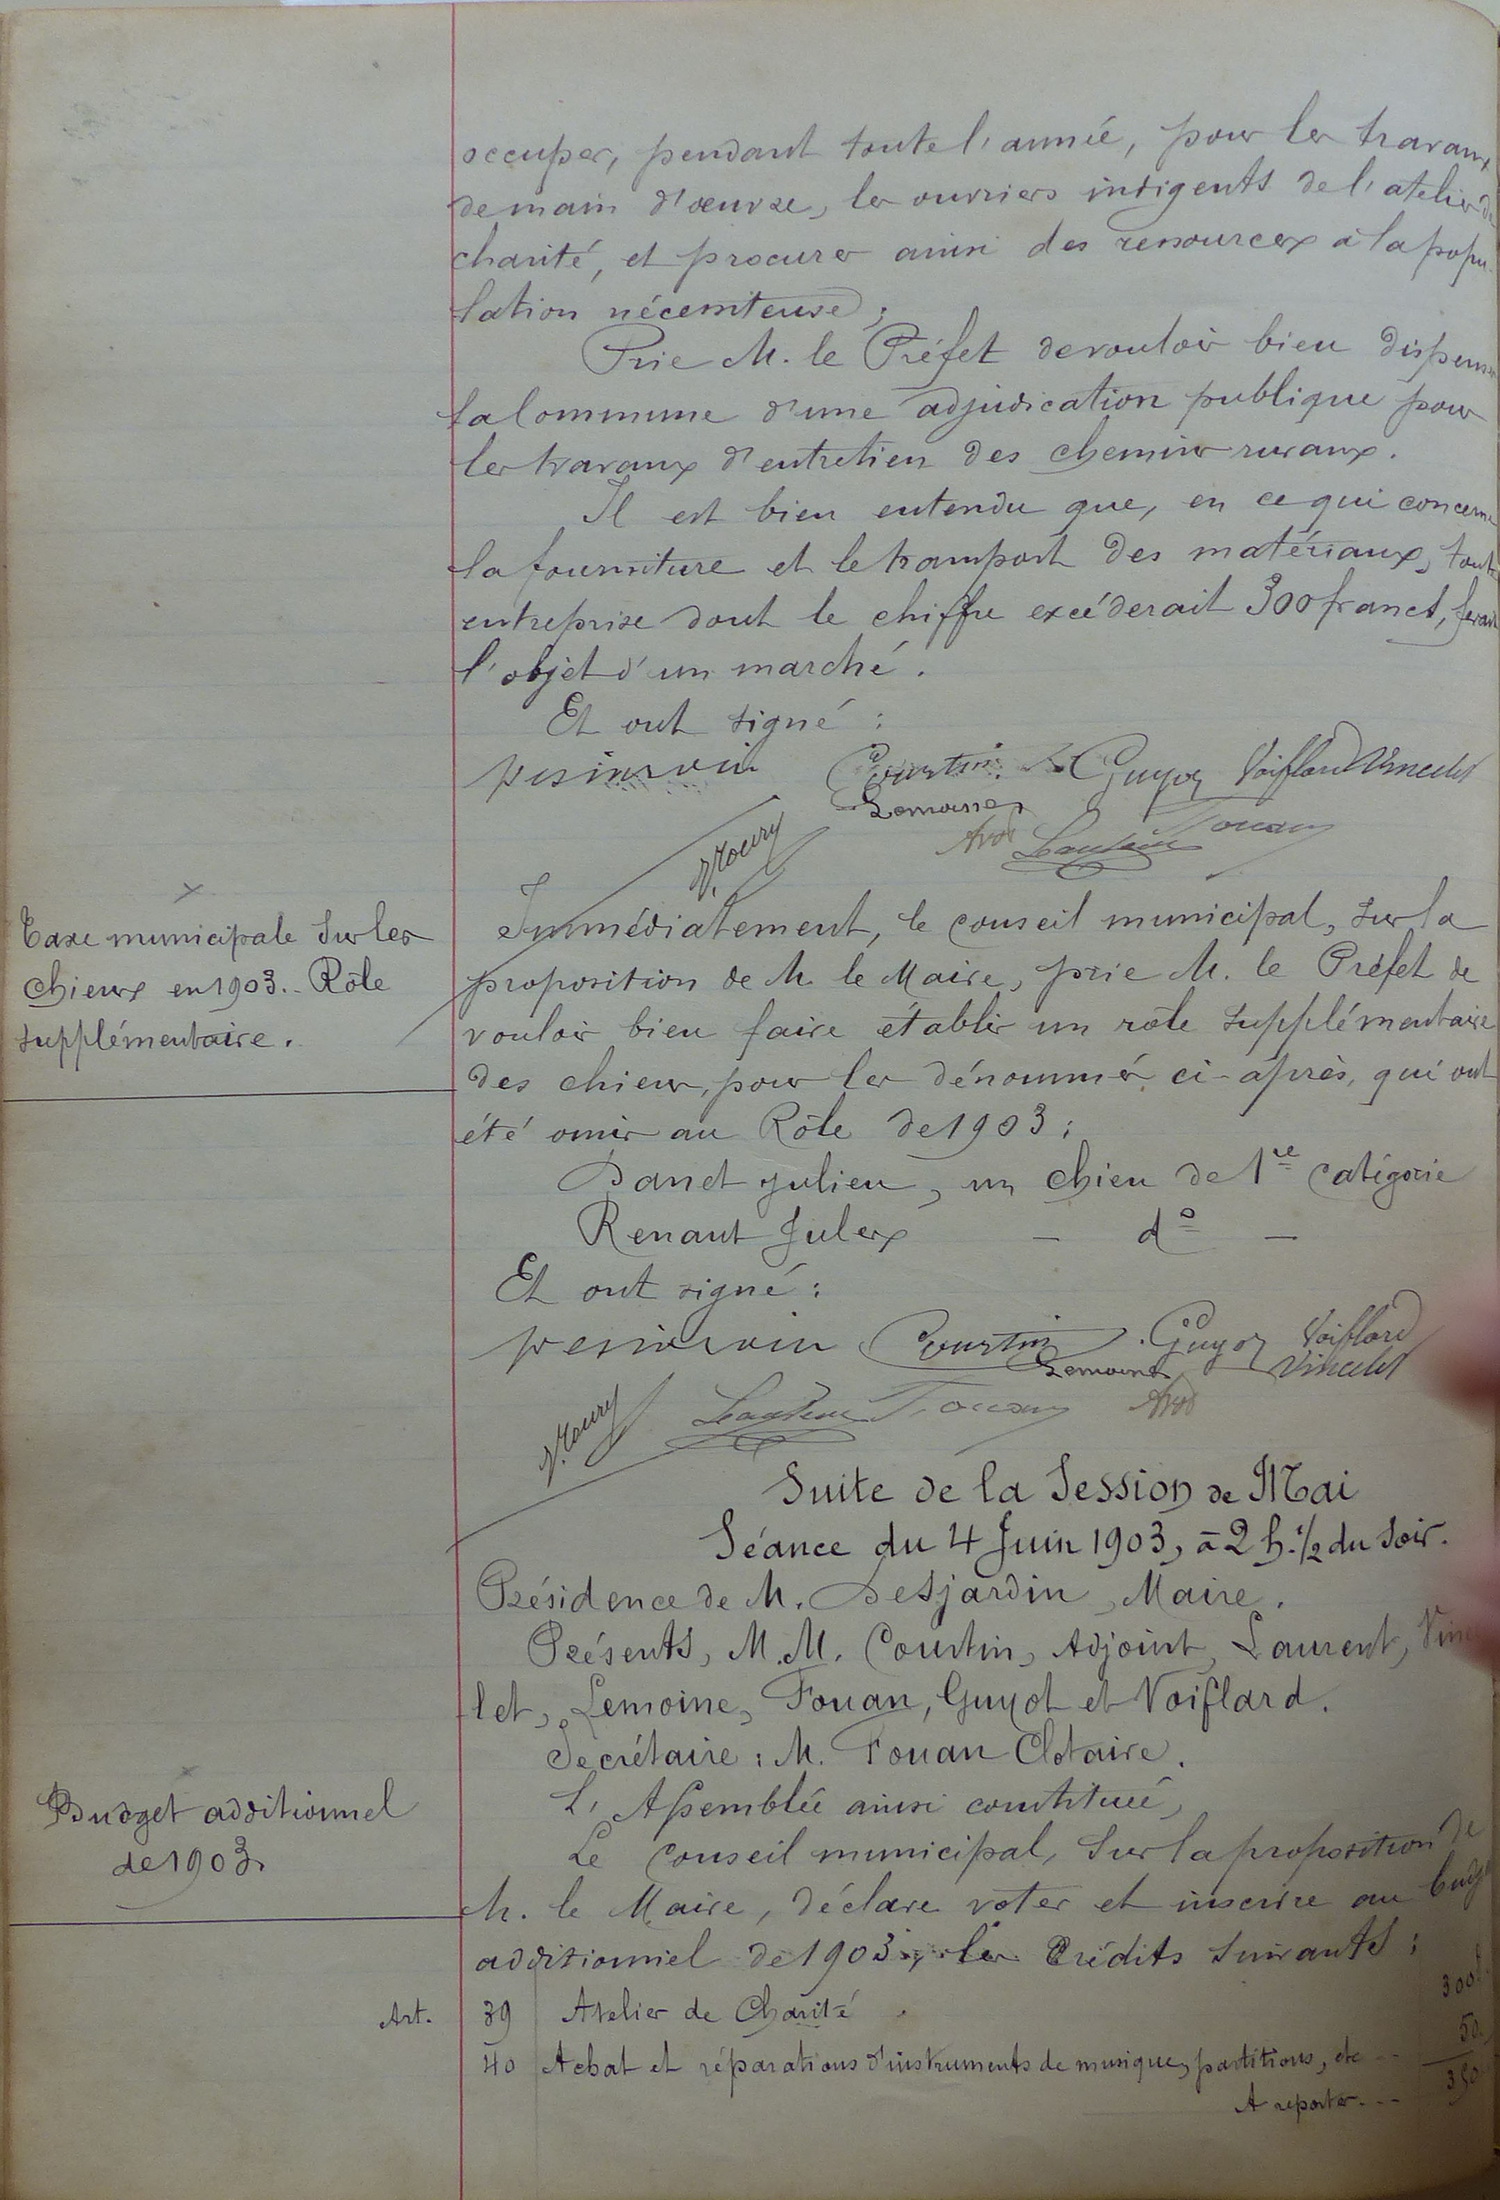 occuper, pendant toute l'année, pour les travaux
de main d'œuvre, les ouvriers indigents de l'atelier de
charité, et procurer ainsi des ressources à la popu-
lation nécessiteuse;
Prie M. le Préfet de vouloir bien dispenser
la Commune d'une adjudication publique pour
les travaux d'entretien des chemins ruraux.
Il est bien entendu que, en ce qui concerne
la fourniture et le transport des matériaux, toute
entreprise dont le chiffre excéderait 300 francs, ferait
l'objet d'un marché.
Et ont signé:
Courtin Guyot Voiflard Vincelet
Lemoine
Fouan
Taxe municipale sur les
chiens en 1903. - Rôle
supplémentaire.
Immédiatement, le Conseil municipal, sur la
proposition de M. le Maire, prie M. le Préfet de
vouloir bien faire établir un rôle supplémentaire
des chiens, pour les dénommés ci-après, qui ont
été omis au Rôle de 1903:
Danet Julien, un chien de 1re catégorie
Renaut Jules - do -
Et ont signé:
Courtin Guyot Voiflard
Lemoine Vincelet
Fouan
Suite de la Session de Mai
Séance du 4 Juin 1903, à 2 h. 1/2 du soir.
Présidence de M. Desjardin, Maire.
Présents, M.M. Courtin, Adjoint, Laurent, Vince
let, Lemoine, Fouan, Guyot et Voiflard.
Secrétaire: M. Fouan Clotaire.
L'Assemblée ainsi constituée,
Budget additionnel
de 1903.
Le Conseil municipal, sur la proposition de
M. le Maire, déclare voter et inscrire au budget
additionnel de 1903, les Crédits suivants:
Art. 39 Atelier de Charité 300f
40 Achat et réparations d'instruments de musique, partitions, etc -- 50
A reporter.-- 350